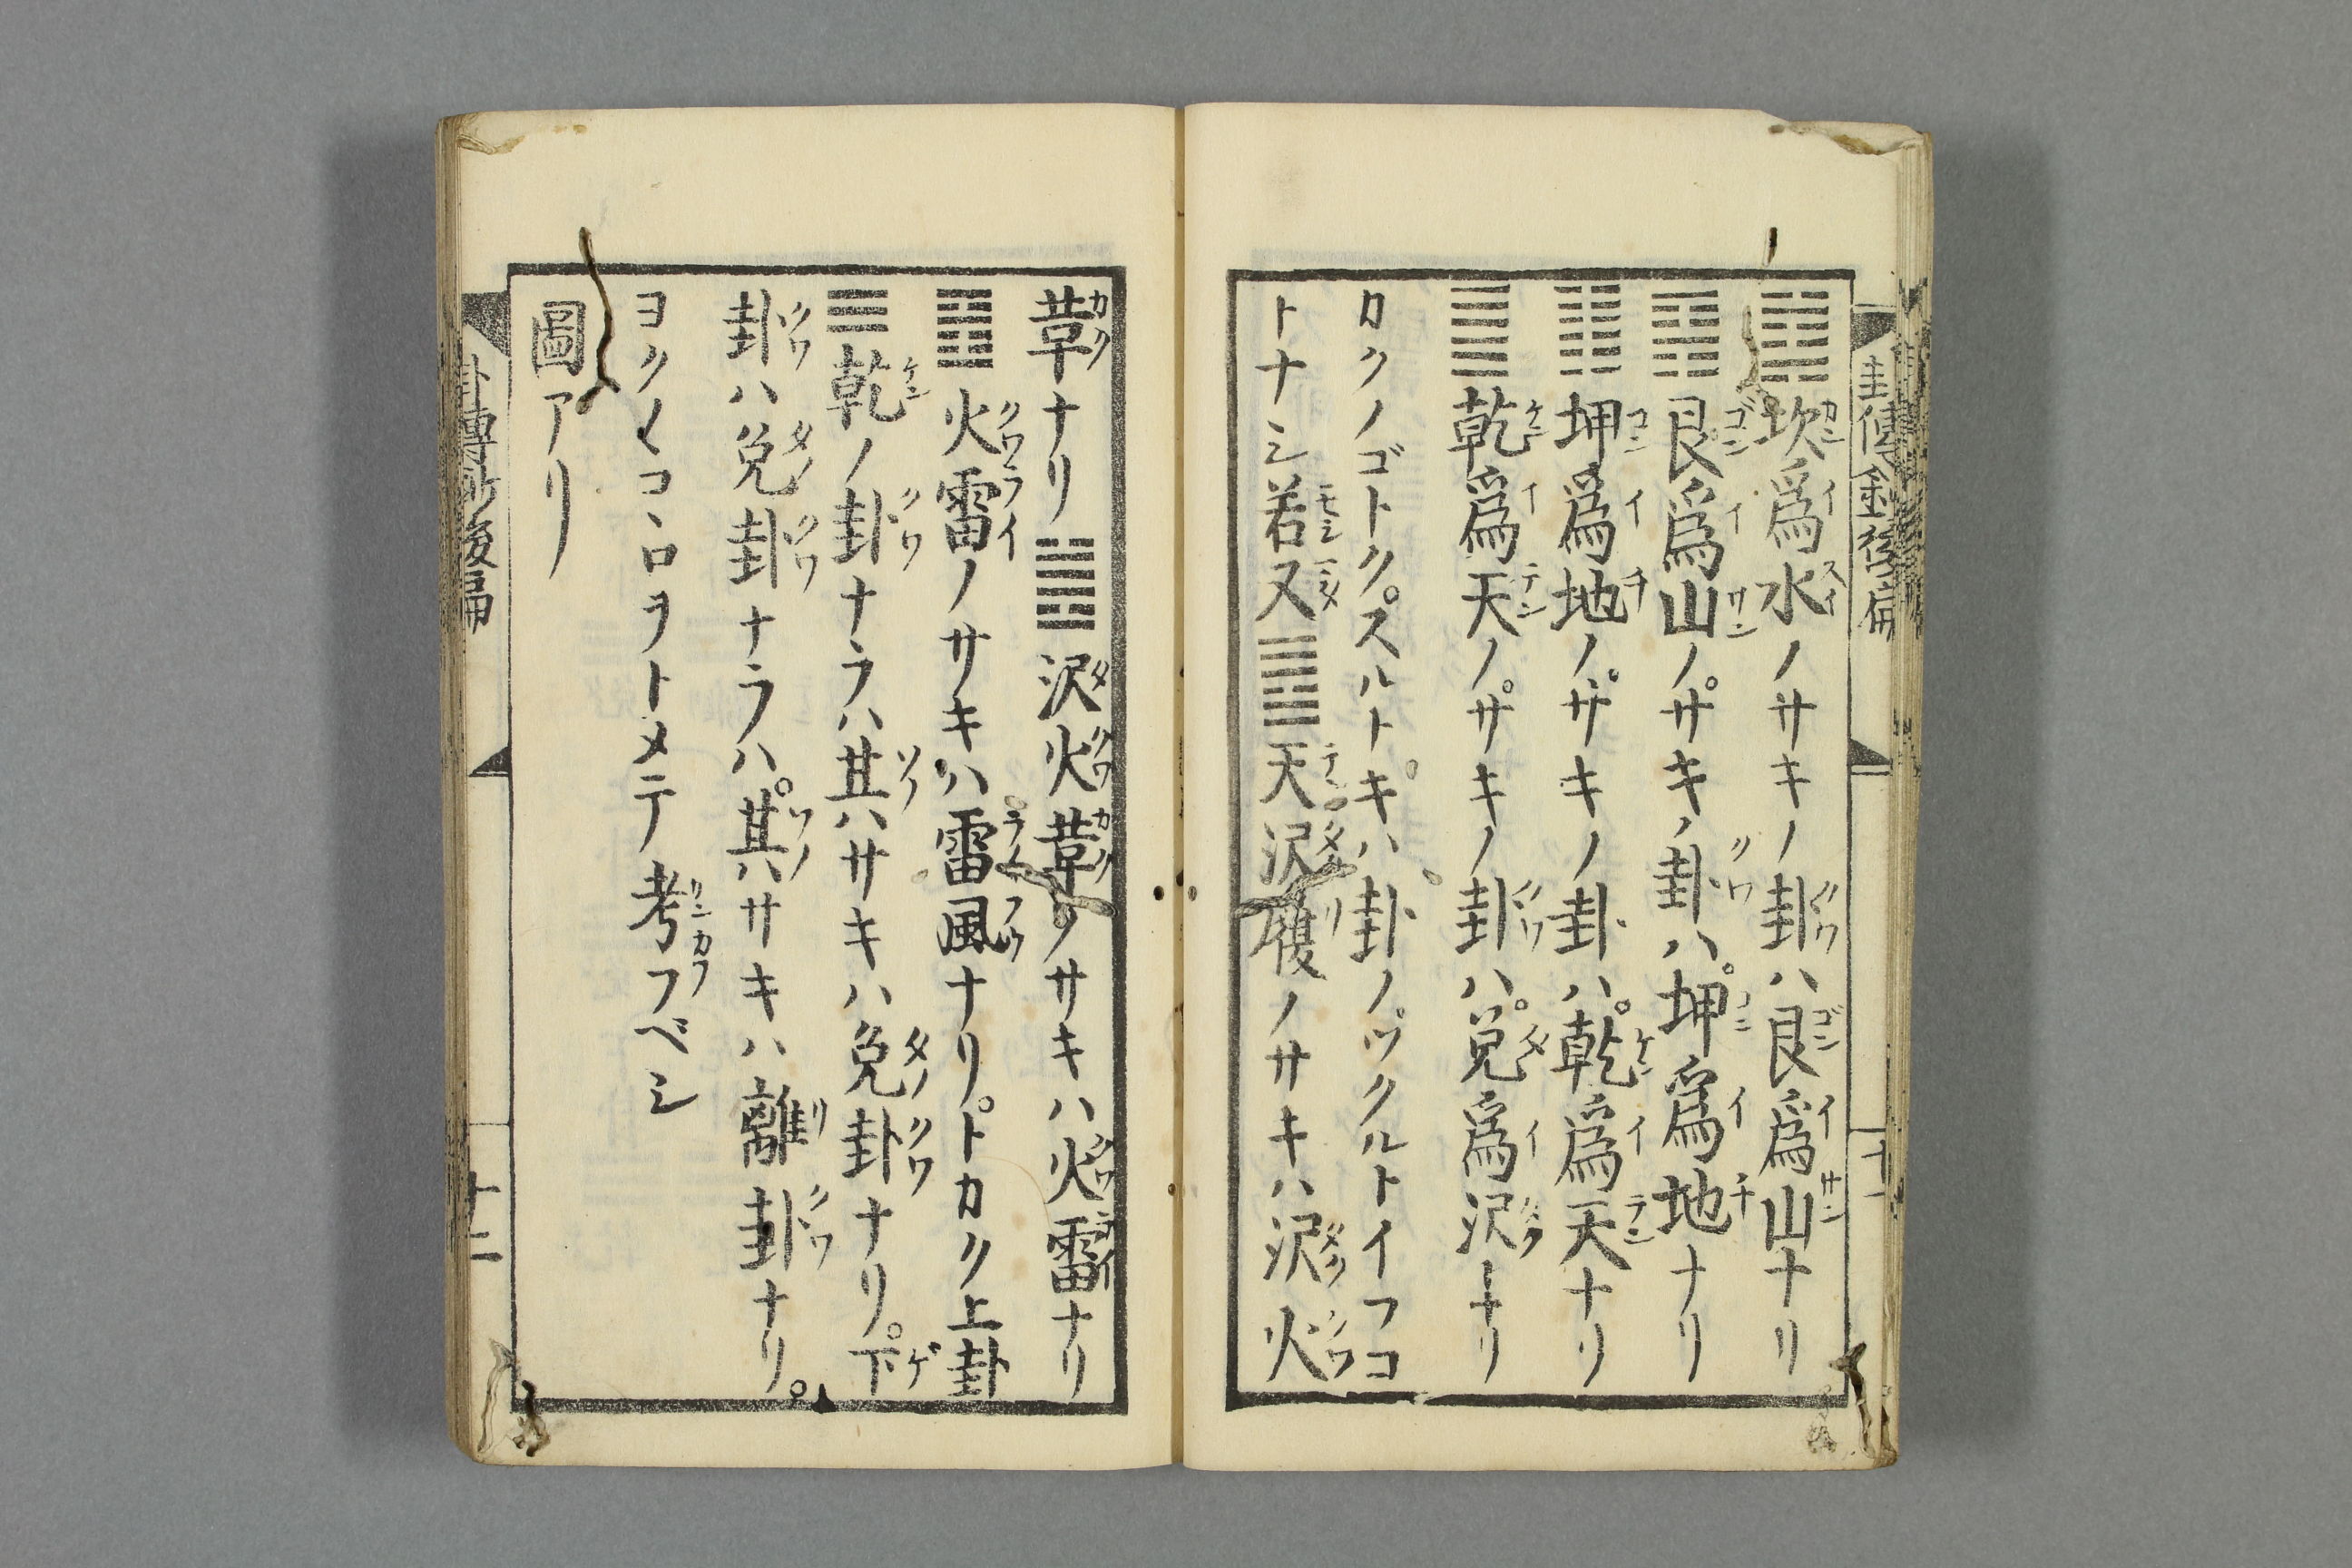 ䷜坎爲水ノサキノ卦ハ艮爲山ナリ
䷳艮爲山ノサキノ卦ハ坤爲地ナリ
䷁坤爲地ノサキノ卦ハ乾爲天ナリ
䷀乾爲天ノサキノ卦ハ兌爲沢ナリ
カクノゴトクスルトキハ卦ノツクルトイフコ
トナシ若又䷉天沢履ノサキハ沢火
革ナリ䷰沢火革ノサキハ火雷ナリ
䷔火雷ノサキハ雷風ナリトカク上卦
☰乾ノ卦ナラハ其ハサキハ兌卦ナリ下
卦ハ兌卦ナラハ其ハサキハ離卦ナリ
ヨク〱コヽロヲトメテ考フベシ
圖アリ
十二